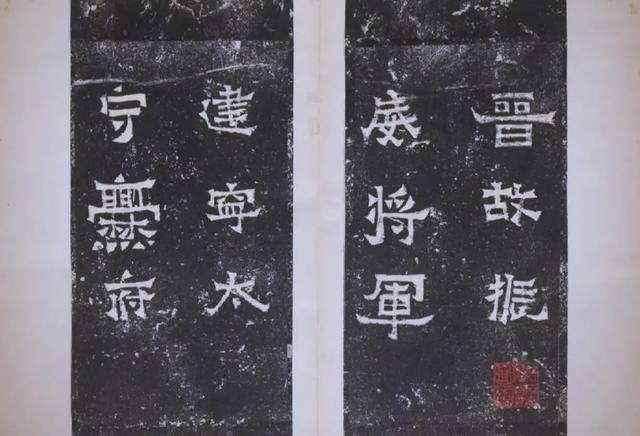 晋故振
威将軍
建寧太
守爨府